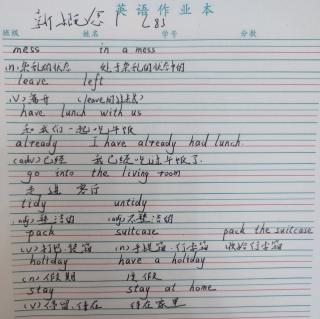 英语作业本
新概念1 L83
班级 姓名 学号 分数
mess in a mess
(n.)杂乱的状态 处于杂乱的状态中的
leave left
(v.)离开 (leave的过去式)
have lunch with us
和我们一起吃午饭
already I have already had lunch.
(adv.)已经 我已经吃过午饭了.
go into the living room
走进 客厅
tidy untidy
(adj.)整洁的 (adj.)不整洁的
pack suitcase pack the suitcase
(v.)打包,装箱 (n.)手提箱,行李箱 收拾行李箱
holiday have a holiday
(n.)假期 度假
stay stay at home
(v.)停留,待在 待在家里